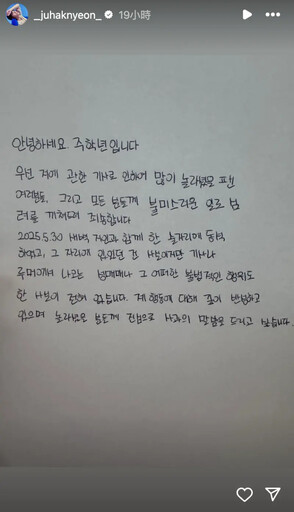 _juhaknyeon_ 19小時
안녕하세요 주학년입니다
우선 저에 관한 기사로 인하여 많이 놀라셨을 팬
여러분들, 그리고 모든 분들께 불미스러운 일로 심
려를 끼쳐드려 죄송합니다
2025.5.30 새벽 지인과 함께 한 술자리에 동석
하였고, 그 자리에 있었던 건 사실이지만 기사나
루머에서 나오는 성매매나 그 어떠한 불법적인 행위도
한 사실이 전혀 없습니다. 제 행동에 대해 깊이 반성하고
있으며 놀라셨을 분들께 진심으로 사과의 말씀을 드리고 싶습니다.